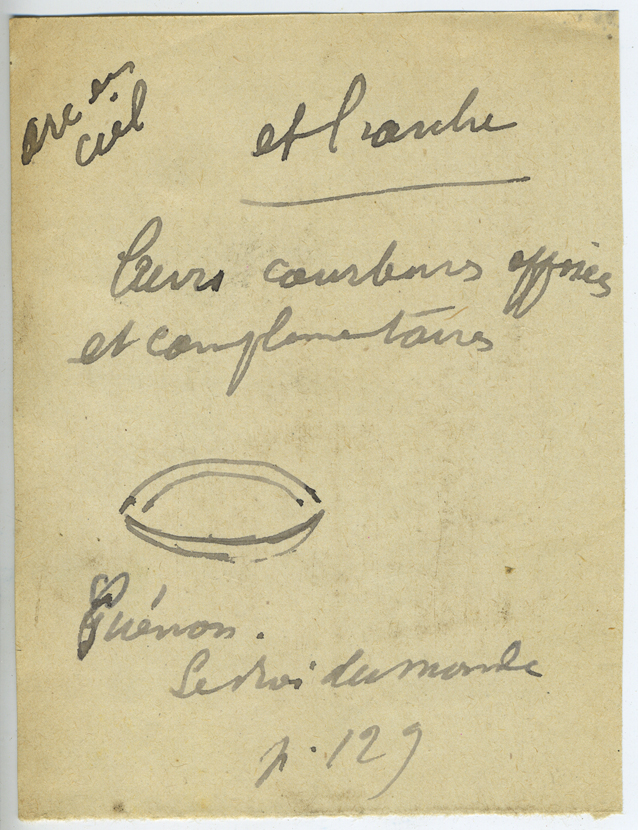 arc en
ciel
et l'arche
leurs courbures opposées
et complementaires
Guénon.
Le roi du monde
p. 129